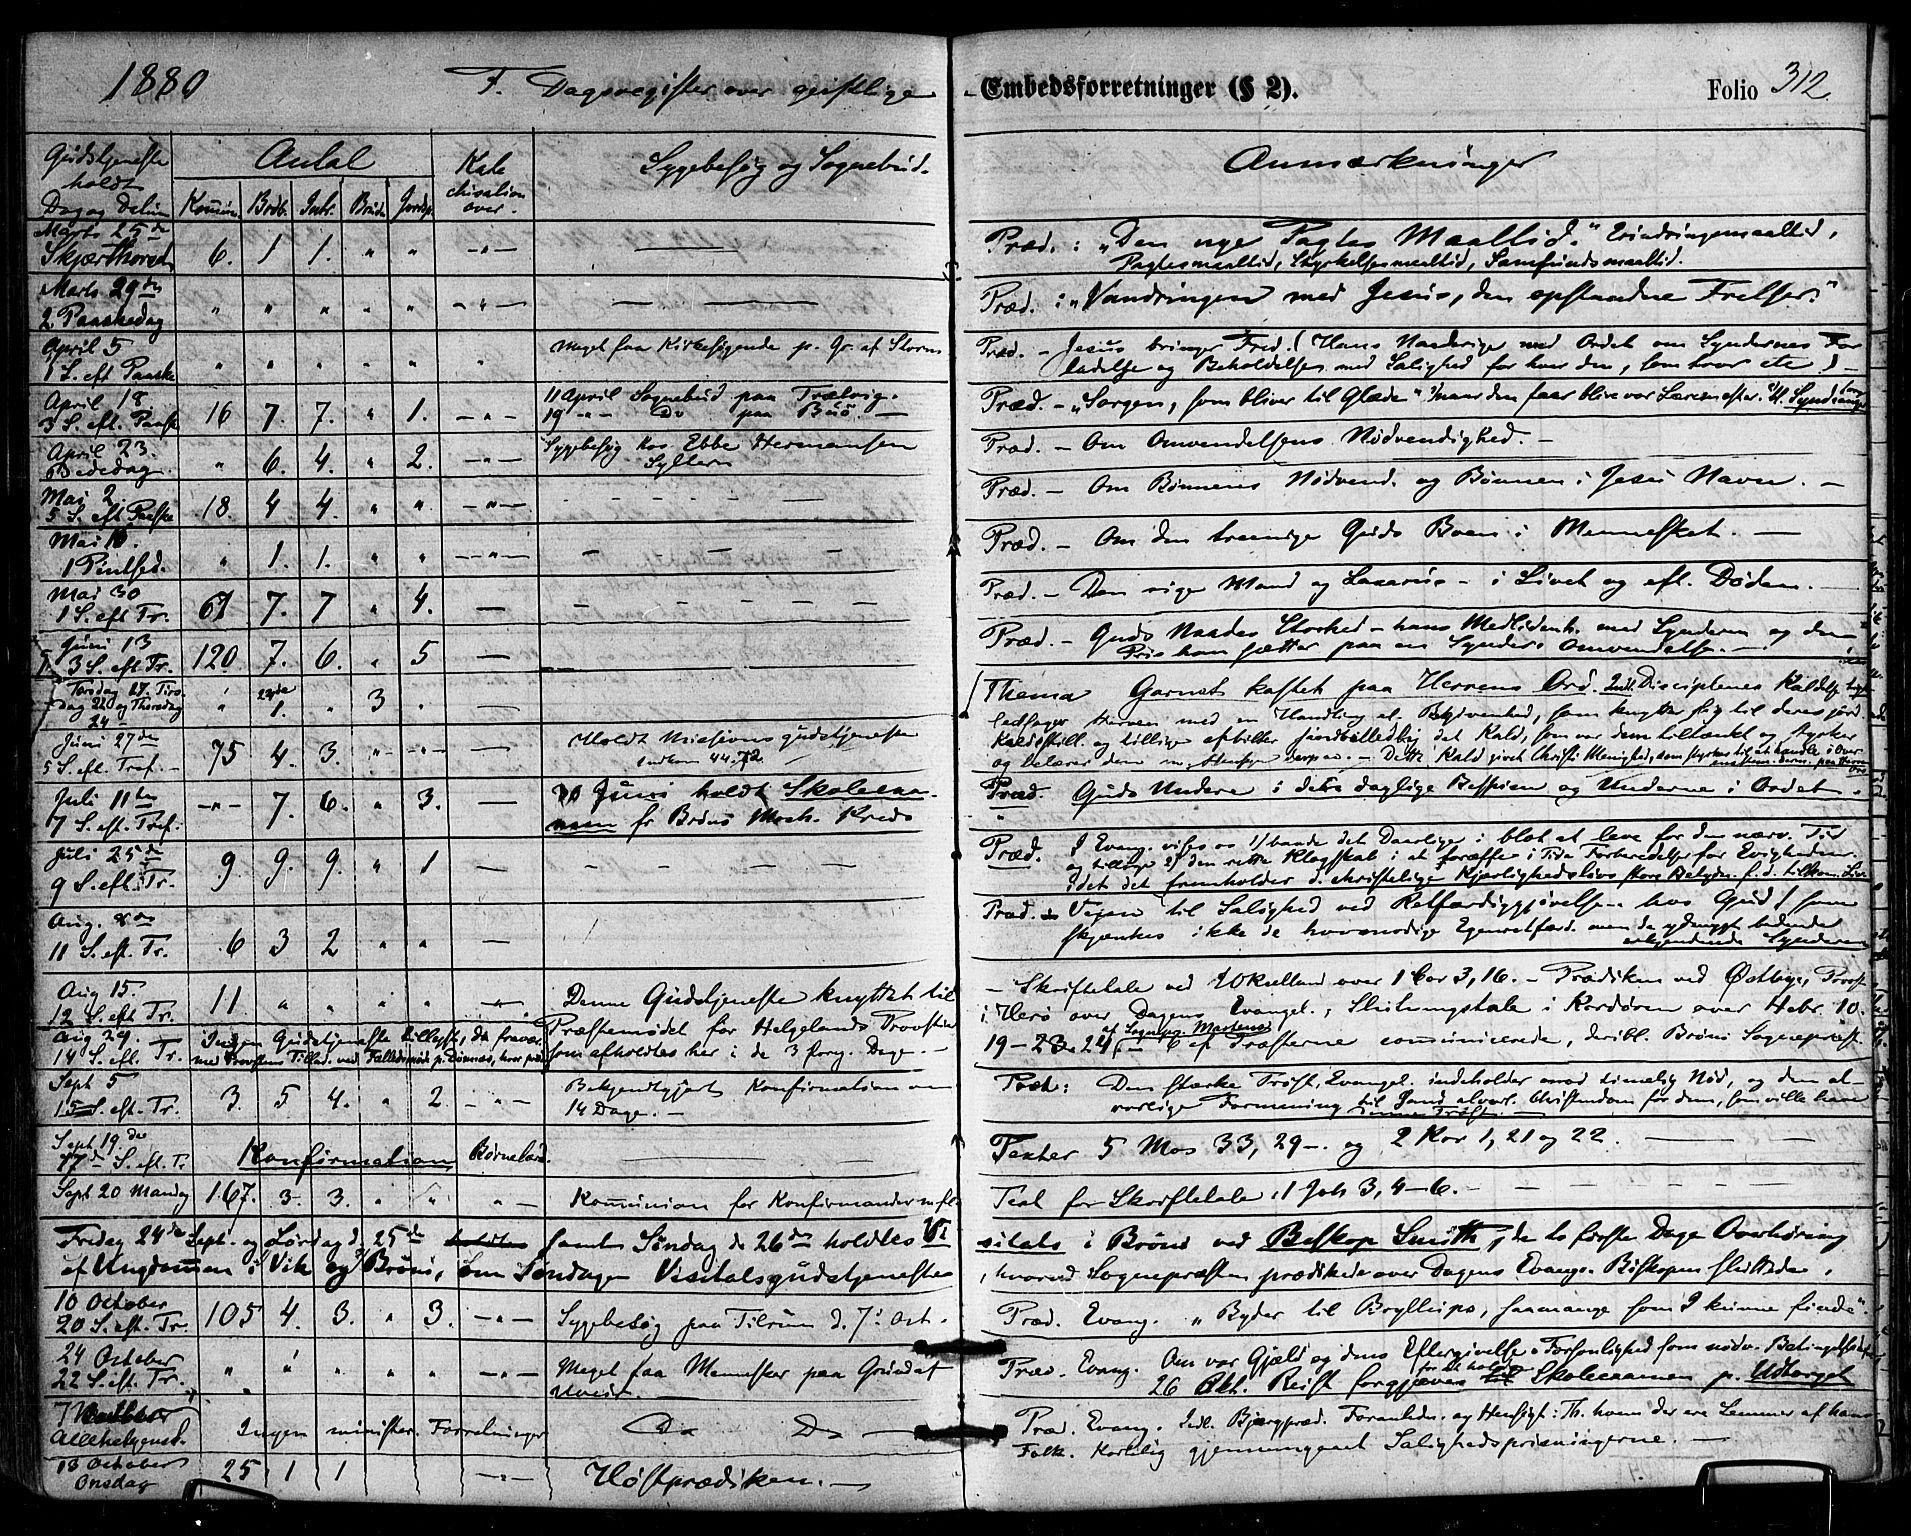 1880 F. Dagsregister over geistlige Embedsforretninger (§ 2). Folio 312.
Gudstjeneste holdt Dag og Datum Antal Kommun. Brdb. Intr. Brude Jordp. Kate chisation over. Sygebesøg og Sognebud. Anmærkninger
Marts 25de Skjærthorsd. 6. 1 1. " " -"- Præd. : "Den nye Pagtes Maaltid." Erindringsmaaltid,
Pagtesmaaltid, Styrkelsesmaaltid, Samfundsmaaltid.
Marts 29de 2. Paaskedag " " " " " -"- Præd. : "Vandringen med Jesus, den opstandne Frelser."
April 5 1 S. eft Paaske " " " " " " Meget faa Kirkesøgende p. Gr. af Storm Præd. - Jesus bringer Fred. ( Hans Naaderige med Ordet om Syndernes For
ladelse og Beholdelse med Salighed for hver den, som tror etc )
April 18 3 S. eft. Paaske 16 7. 7. " 1. -"- 11 April Sognebud paa Trælvig. Præd. - "Sorgen, som bliver til Glæde" naar den faar blive vor Læremester.
19 -"- Do paa Buø -
April 23. Bededag. " 6. 4. " 2. -"- Sygebesøg hos Ebbe Hermansen Præd. - Om Omvendelsens Nødvendighed. -
Sylteren
Mai 2. 5 S. eft Paaske 18. 4 4. " " -"- Præd. - Om Bønnens Nødvend. og Bønnen i Jesu Navn. -
Mai 1 Pintsed. " 1. 1. " " -"- Præd. - Om den treenige Guds Boen i Mennesket. -
Mai 30 1 S. eft Tr. 61 7. 7 " 4. - Præd. - Den rige Mand og Lazarus - i Livet og eft. Døden. -
Juni 13 3 S. eft Tr. 120. 7. 6. " 5 - Præd. - Guds Naades Storhed - hans Medlidenh. med Synderen og den
Pris han sætter paa en Synders Omvendelse. -
Tirs dag 22 og Thorsdag 24 - " 1. " 3 " Thema Garnet kastet paa Herrens Ord. Indl. Disciplenes Kaldelse
ledsager Herren med en Handling el. Begivenhed, som knytter sig til deres jord.
Juni 27de 5 S. eft. Tref. - 75 4. 3. " -"- Holdt Missionsgudstjeneste Kaldsstill. og tillige afbilder sindbilledlig det Kald, som var dem tiltænkt og styrker
Indkom 44.72 og belærer dem m. Hensyn derpaa. - Dette Kald givet Christi Menighed
Juli 11te 7 S. eft. Tref. -"- 7. 6. " 3. - 10 Juni holdt Skoleexa- Præd. Guds Undere i det daglige Bespisn. og Underne i Ordet.
men fr Brønø Kreds
Juli 25de 9 S. eft. Tr. 9. 9. 9. " 1 - Præd. I Evang. vises os 1) baade det Daarlige i blot at leve for den nærv. Tid
og tillige 2) den rette Klogskab i at træffe i Tide Forberedelse for Evigheden.
Idet det fremholder d. christelige Kjærlighedslivs store Betydn. f. d. tilkom. Liv
Aug. 8de 11 S. eft. Tr. 6 3 2 " " - Præd. Vejen til Salighed ved Retfærdiggjørelsen hos Gud ( som
skjænkes ikke de hovmodige Egenretfærd. men de ydmygt bedende
erkjendende Syndere
Aug 15. 12 S. eft Tr. 11 " " " " " Denne Gudstjeneste knyttet til - Skriftetale ved Qvelland over 1 Cor 3, 16. - Prædiken ved Østbye, Provst
Præstemødet for Helgelands Provsti i Herø over Dagens Evangel., Slutningstale i Kordøren over Hebr. 10.
Aug 29. 14 S. eft. Tr. Ingen Gudstjeneste tillyst, da fravær. som afholdtes her i de 3 forrg. Dage. - 19 - 23. 24 af Sognepr. Martens - 6 af Præsterne communicerede, deribl. Brønø Sognepræst.
med Provstens Tillad. ved Fællesmøde p. Dønnæs, hvor præd.
Sept 5 15 S. eft. Tr. 3. 5 4. " 2 -"- Bekjendtgjort Konfirmation om Præd: Den stærke Trøst, Evangel. indeholder mod timelig Nød, og den al-
14 Dage. - vorlige Formaning til Sand alvorl. Christendom for dem, som ville have
denne Trøst. -
Sept 19de 17de S. eft. Tr. Konfirmation Børnelærd. Texter 5 Mos 33, 29 -. og 2 Kor 1, 21 og 22.
Sept 20 Mandag 167. 3. 3. " " " Kommunion for Konfirmander m.fl. Text for Skriftetale: 1 Joh 3, 4-6.
Fredag 24de Sept. og Lørdag d. 25de samt Søndag d. 26de holdtes Vi sitats i Brønø ved Biskop Smitth, de to første Dage Overhøring
af Ungdommen i Vik og Brønø, om Søndagen Visitatsgudstjeneste, hvorved Sognepræsten prædikede over Dagens Evang. Biskopen sluttede.
10 October 20 S. eft. Tr. 105 4. 3. " 3. -"- Sygebesøg paa Tilrum d. 7. Oct. Præd. Evang. "Byder til Bryllups, saamange som I kunne finde".
24 October 22 S. eft. Tr. " " " " " - Meget faa Mennesker paa Grund af Præd. Evang. Om vor Gjæld og dens Eftergivelse - Forsonlighed som nødv. Betingelse
Uveir. 26 Okt. Reist forgjæves for at holde Skoleexamen p. Udtorget
7 Allehelgensd. Ingen minister. Forretninger Do Do - Præd. Evang. Indl. Bjergpræd. Foranledn. og Hensigt: Th. hvem der ere Lemmer af hans
Folk. Kortelig gjennemgaaet Salighedsprisningerne. -
13 October Onsdag 25 1 1 -"- Høstprædiken. -